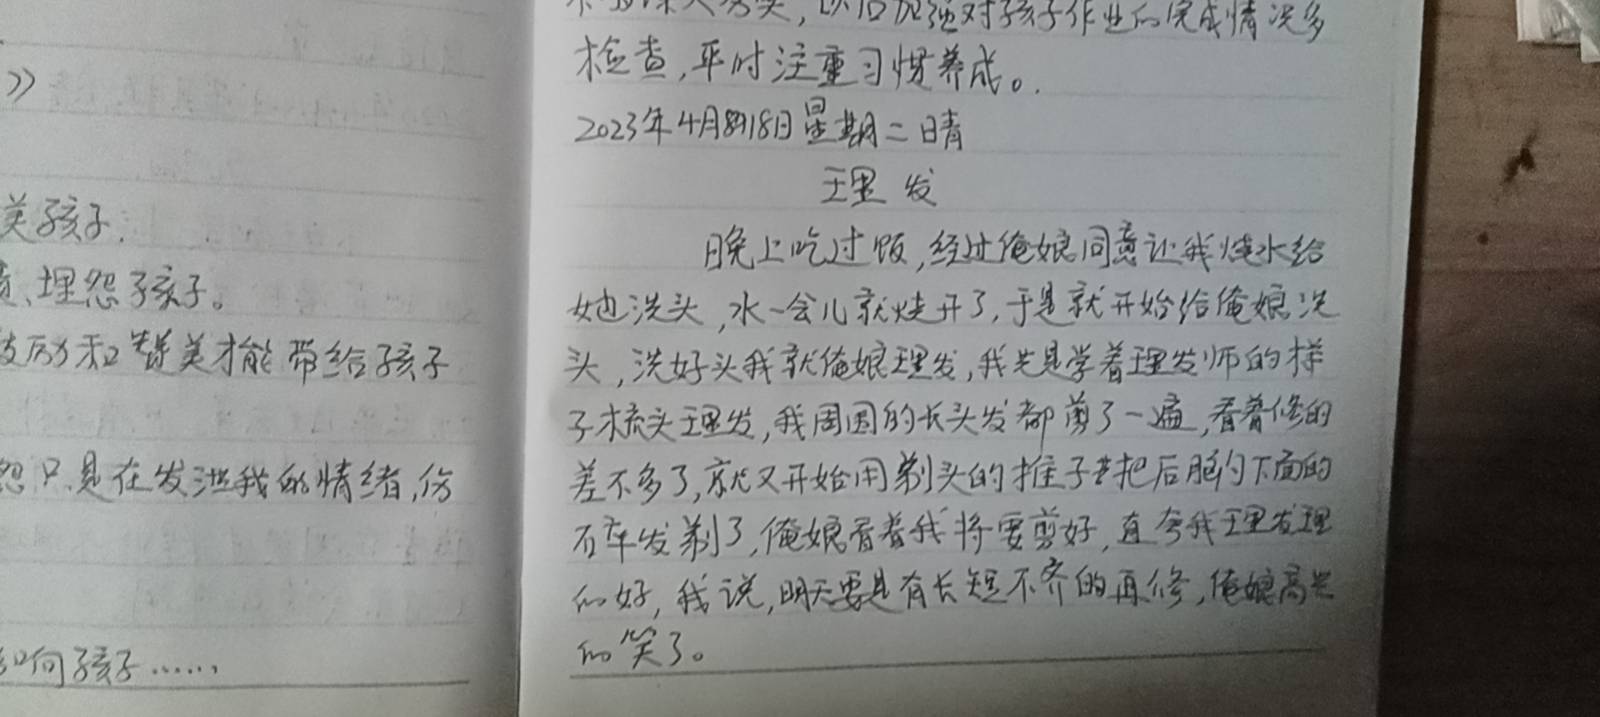 》
美孩子.
、埋怨孩子。
励和赞美才能带给孩子
怨只是在发泄我的情绪,伤
如何孩子……
以后加强对孩子作业的完成情况多
检查,平时注重习惯养成。
2023年4月18日星期二晴
理发
晚上吃过饭,经过俺娘同意让我烧水给
她洗头,水一会儿就烧开了,于是就开始给俺娘洗
头,洗好头我就俺娘理发,我先是学着理发师的样
子梳头理发,我周围的长头发都剪了一遍,看着修的
差不多了,就又开始用剃头的推子把后脑勺下面的
碎发剃了,俺娘看着我将要剪好,直夸我理发理
的好,我说,明天要是有长短不齐的再修,俺娘高兴
的笑了。